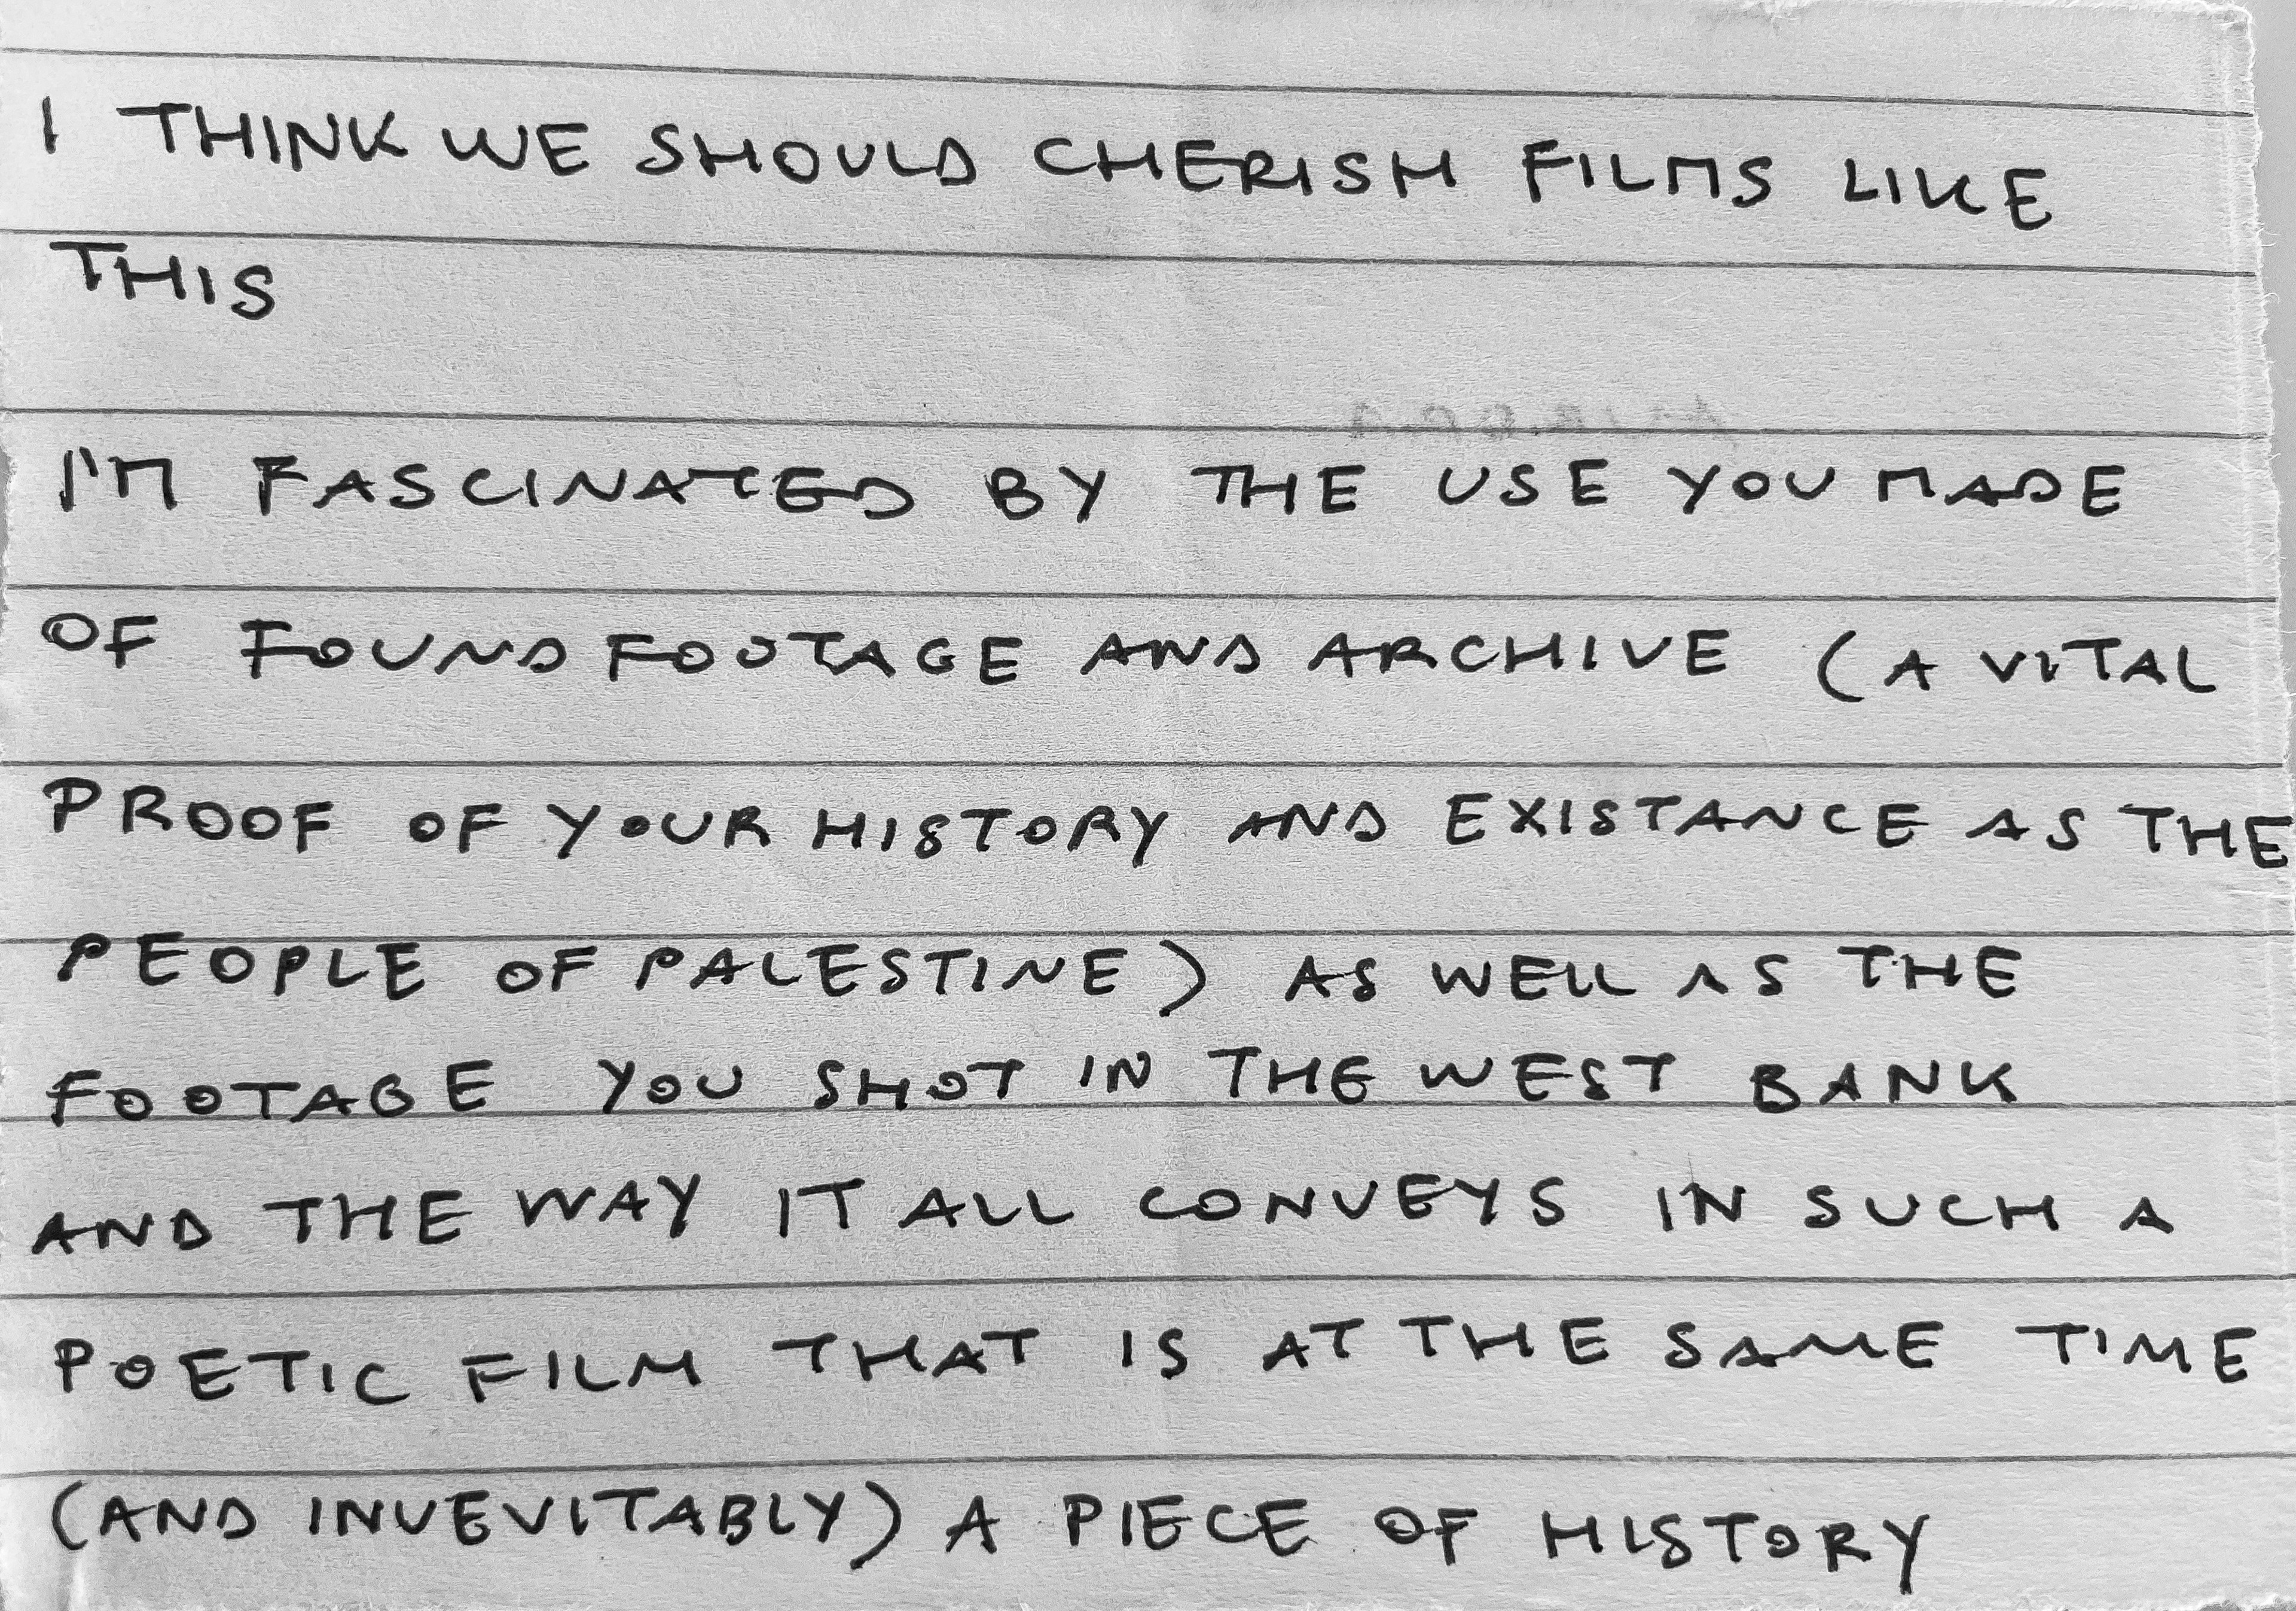 I THINK WE SHOULD CHERISH FILMS LIKE
THIS
I'M FASCINATED BY THE USE YOU MADE
OF FOUND FOOTAGE AND ARCHIVE (A VITAL
PROOF OF YOUR HISTORY AND EXISTANCE AS THE
PEOPLE OF PALESTINE) AS WELL AS THE
FOOTAGE YOU SHOT IN THE WEST BANK
AND THE WAY IT ALL CONVEYS IN SUCH A
POETIC FILM THAT IS AT THE SAME TIME
(AND INUEVITABLY) A PIECE OF HISTORY